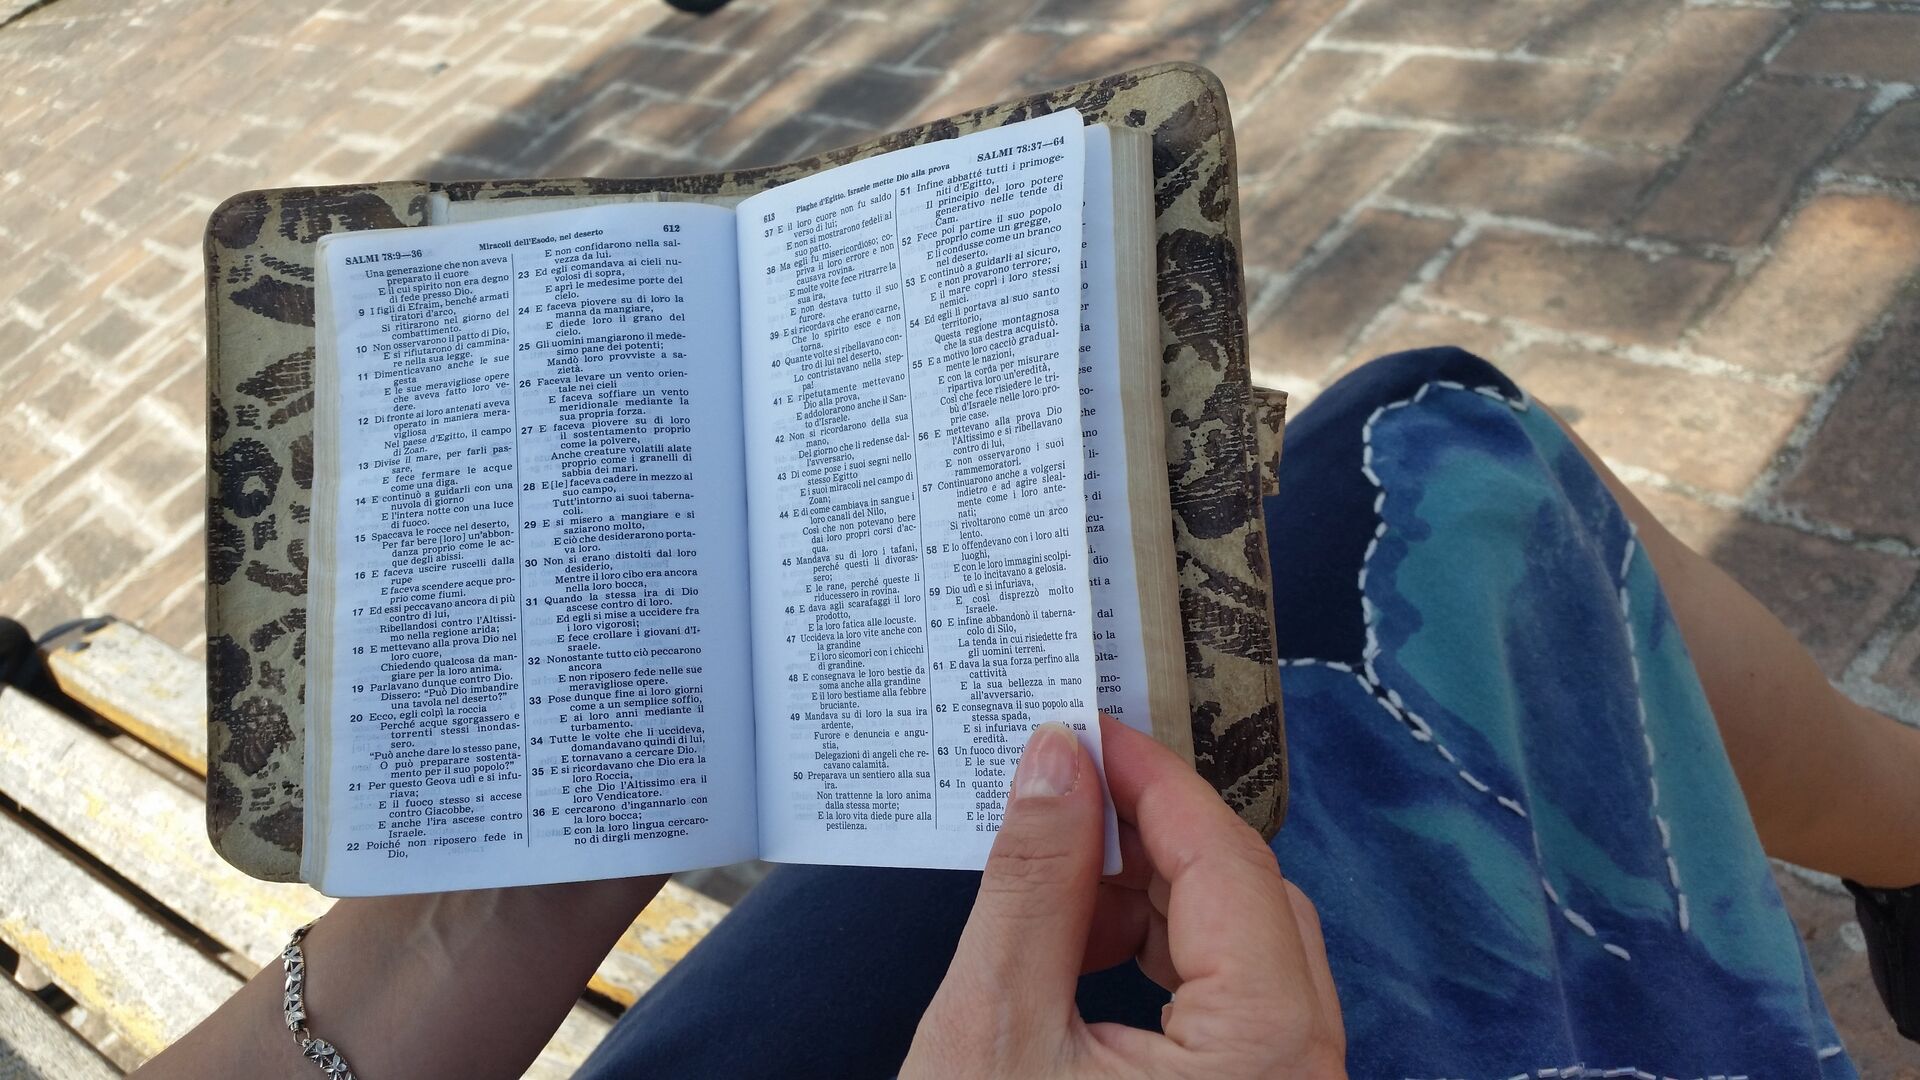 SALMI 78:9—36
Miracoli dell'Esodo, nel deserto
612
Una generazione che non aveva
preparato il cuore
E il cui spirito non era degno
di fede presso Dio.
9 I figli di Efraim, benché armati
tiratori d'arco,
Si ritirarono nel giorno del
combattimento.
10 Non osservarono il patto di Dio,
E si rifiutarono di cammina-
re nella sua legge.
11 Dimenticavano anche le sue
gesta
E le sue meravigliose opere
che aveva fatto loro ve-
dere.
12 Di fronte ai loro antenati aveva
operato in maniera mera-
vigliosa
Nel paese d'Egitto, il campo
di Zoan.
13 Divise il mare, per farli pas-
sare,
E fece fermare le acque
come una diga.
14 E continuò a guidarli con una
nuvola di giorno
E l'intera notte con una luce
di fuoco.
15 Spaccava le rocce nel deserto,
Per far bere [loro] un'abbon-
danza proprio come le ac-
que degli abissi.
16 E faceva uscire ruscelli dalla
rupe
E faceva scendere acque pro-
prio come fiumi.
17 Ed essi peccavano ancora di più
contro di lui,
Ribellandosi contro l'Altissi-
mo nella regione arida;
18 E mettevano alla prova Dio nel
loro cuore,
Chiedendo qualcosa da man-
giare per la loro anima.
19 Parlavano dunque contro Dio.
Dissero: "Può Dio imbandire
una tavola nel deserto?"
20 Ecco, egli colpì la roccia
Perché acque sgorgassero e
torrenti stessi inondas-
sero.
"Può anche dare lo stesso pane,
O può preparare sostenta-
mento per il suo popolo?"
21 Per questo Geova udì e si infu-
riava;
E il fuoco stesso si accese
contro Giacobbe,
E anche l'ira ascese contro
Israele.
22 Poiché non riposero fede in
Dio,
E non confidarono nella sal-
vezza da lui.
23 Ed egli comandava ai cieli nu-
volosi di sopra,
E aprì le medesime porte del
cielo.
24 E faceva piovere su di loro la
manna da mangiare,
E diede loro il grano del
cielo.
25 Gli uomini mangiarono il mede-
simo pane dei potenti;
Mandò loro provviste a sa-
zietà.
26 Faceva levare un vento orien-
tale nei cieli
E faceva soffiare un vento
meridionale mediante la
sua propria forza.
27 E faceva piovere su di loro
il sostentamento proprio
come la polvere,
Anche creature volatili alate
proprio come i granelli di
sabbia dei mari.
28 E [le] faceva cadere in mezzo al
suo campo,
Tutt'intorno ai suoi taberna-
coli.
29 E si misero a mangiare e si
saziarono molto,
E ciò che desiderarono porta-
va loro.
30 Non si erano distolti dal loro
desiderio,
Mentre il loro cibo era ancora
nella loro bocca,
31 Quando la stessa ira di Dio
ascese contro di loro.
Ed egli si mise a uccidere fra
i loro vigorosi;
E fece crollare i giovani d'I-
sraele.
32 Nonostante tutto ciò peccarono
ancora
E non riposero fede nelle sue
meravigliose opere.
33 Pose dunque fine ai loro giorni
come a un semplice soffio,
E ai loro anni mediante il
turbamento.
34 Tutte le volte che li uccideva,
domandavano quindi di lui,
E tornavano a cercare Dio.
35 E si ricordavano che Dio era la
loro Roccia,
E che Dio l'Altissimo era il
loro Vendicatore.
36 E cercarono d'ingannarlo con
la loro bocca;
E con la loro lingua cercaro-
no di dirgli menzogne.
613
Piaghe d'Egitto. Israele mette Dio alla prova
SALMI 78:37—64
37 E il loro cuore non fu saldo
verso di lui;
E non si mostrarono fedeli al
suo patto.
38 Ma egli fu misericordioso; co-
priva il loro errore e non
causava rovina.
E molte volte fece ritrarre la
sua ira,
E non destava tutto il suo
furore.
39 E si ricordava che erano carne,
Che lo spirito esce e non
torna.
40 Quante volte si ribellavano con-
tro di lui nel deserto,
Lo contristavano nella step-
pa!
41 E ripetutamente mettevano
Dio alla prova,
E addolorarono anche il San-
to d'Israele.
42 Non si ricordarono della sua
mano,
Del giorno che li redense dal-
l'avversario,
43 Di come pose i suoi segni nello
stesso Egitto
E i suoi miracoli nel campo di
Zoan;
44 E di come cambiava in sangue i
loro canali del Nilo,
Così che non potevano bere
dai loro propri corsi d'ac-
qua.
45 Mandava su di loro i tafani,
perché questi li divoras-
sero;
E le rane, perché queste li
riducessero in rovina.
46 E dava agli scarafaggi il loro
prodotto,
E la loro fatica alle locuste.
47 Uccideva la loro vite anche con
la grandine
E i loro sicomori con i chicchi
di grandine.
48 E consegnava le loro bestie da
soma anche alla grandine
E il loro bestiame alla febbre
bruciante.
49 Mandava su di loro la sua ira
ardente,
Furore e denuncia e angu-
stia,
Delegazioni di angeli che re-
cavano calamità.
50 Preparava un sentiero alla sua
ira.
Non trattenne la loro anima
dalla stessa morte;
E la loro vita diede pure alla
pestilenza.
51 Infine abbatté tutti i primoge-
niti d'Egitto,
Il principio del loro potere
generativo nelle tende di
Cam.
52 Fece poi partire il suo popolo
proprio come un gregge,
E li condusse come un branco
nel deserto.
53 E continuò a guidarli al sicuro,
e non provarono terrore;
E il mare coprì i loro stessi
nemici.
54 Ed egli li portava al suo santo
territorio,
Questa regione montagnosa
che la sua destra acquistò.
55 E a motivo loro cacciò gradual-
mente le nazioni,
E con la corda per misurare
ripartiva loro un'eredità,
Così che fece risiedere le tri-
bù d'Israele nelle loro pro-
prie case.
56 E mettevano alla prova Dio
l'Altissimo e si ribellavano
contro di lui,
E non osservarono i suoi
rammemoratori.
57 Continuarono anche a volgersi
indietro e ad agire sleal-
mente come i loro ante-
nati;
Si rivoltarono come un arco
lento.
58 E lo offendevano con i loro alti
luoghi,
E con le loro immagini scolpi-
te lo incitavano a gelosia.
59 Dio udì e si infuriava,
E così disprezzò molto
Israele.
60 E infine abbandonò il taberna-
colo di Silo,
La tenda in cui risiedette fra
gli uomini terreni.
61 E dava la sua forza perfino alla
cattività
E la sua bellezza in mano
all'avversario.
62 E consegnava il suo popolo alla
stessa spada,
E si infuriava sua
eredità.
63 Un fuoco divorò
E le sue
lodate.
64 In quanto
spada,
E le